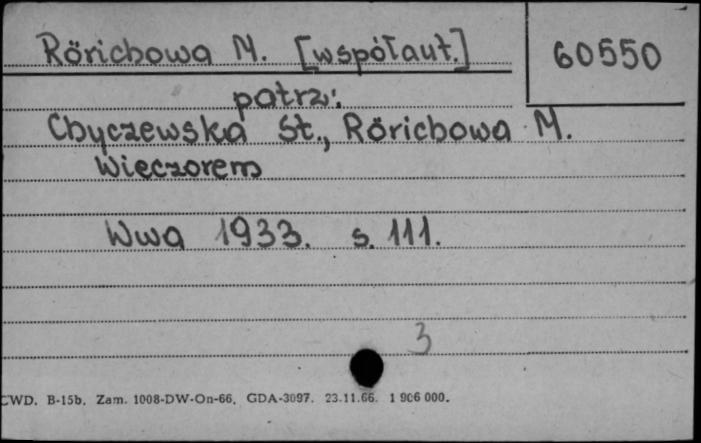 Rörichowa M. [współaut.]
60550
patrz:
Chyczewska St., Rörichowa M.
Wieczorem
Wwa 1933. s. 111.
3
CWD. B-15b. Zam. 1008-DW-On-66. GDA-3097. 23.11.66. 1 906 000.